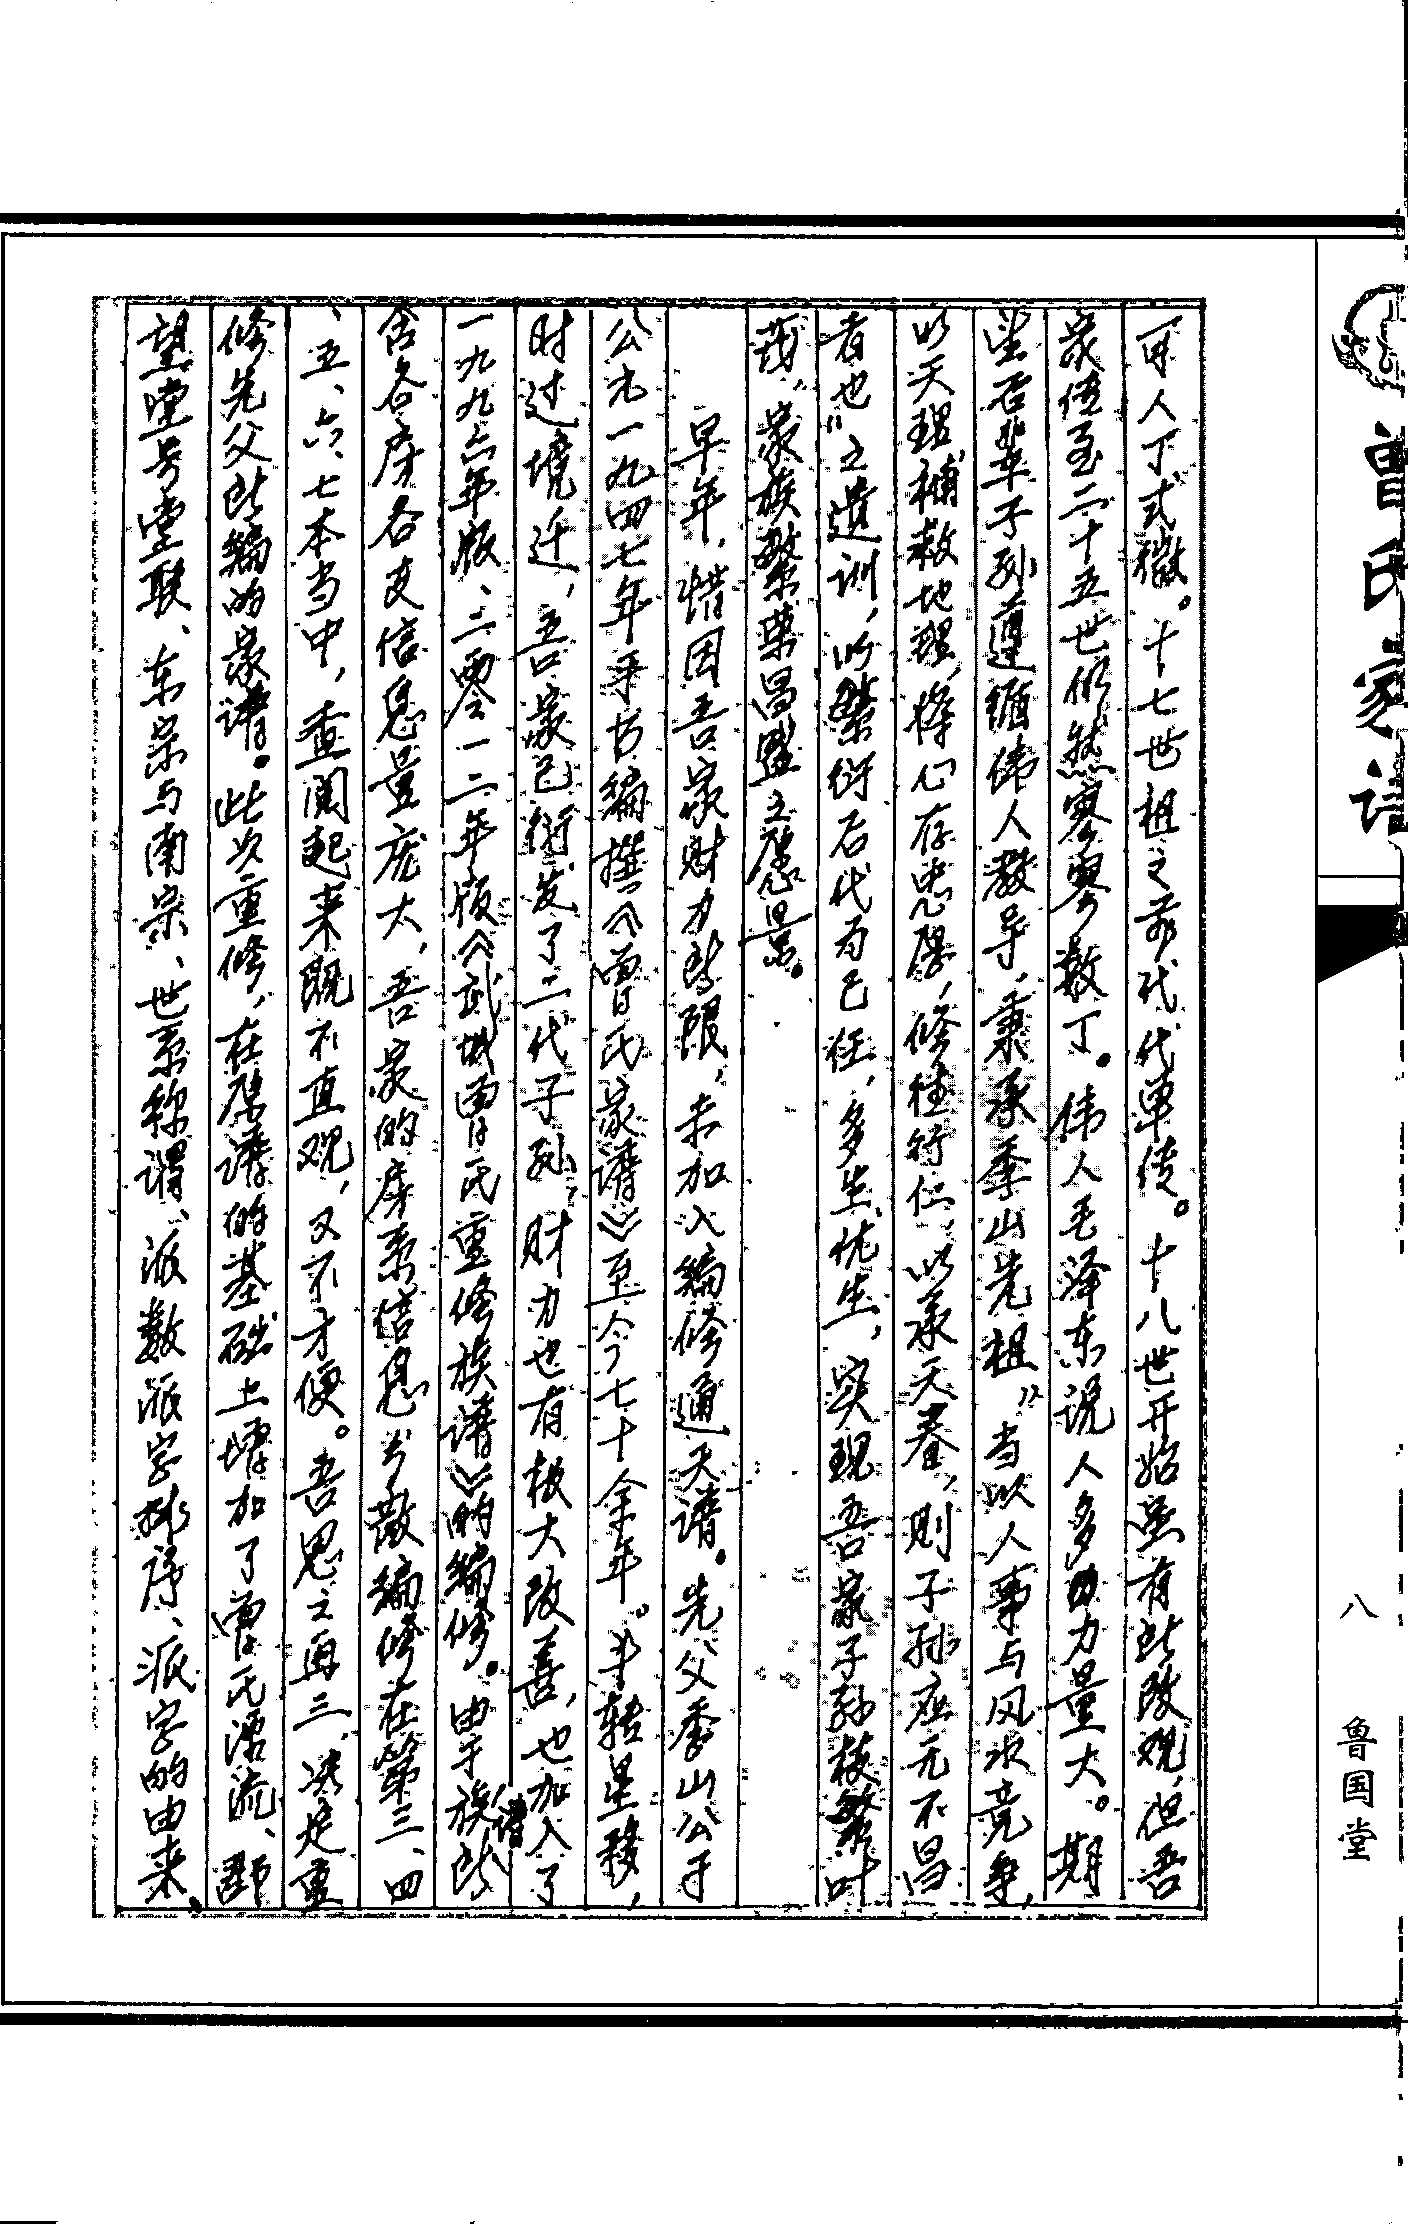 曾氏家谱
八
鲁国堂
可人丁式微。十七世祖之前代代单传。十八世开始虽有所改观，但吾
家传至二十五世仍然寥寥数丁。伟人毛泽东说人多力量大。期
望后辈子孙遵循伟人教导，秉承季山先祖“当以人事与风水竞争，
以天理补救地理，将心存忠厚，修桂行仁以承天眷，则子孙庶无不昌
者也”之遗训，以繁衍后代为己任，多生优生，实现吾家子孙枝繁叶
茂，家族繁荣昌盛之愿景。
早年，惜因吾家财力所限，未加入编修通天谱。先父季山公于
公元一九四七年手书编撰《曾氏家谱》至今七十余年。斗转星移，
时过境迁，吾家已衍发了二代子孙，财力也有极大改善，也加入了
一九九六年版、二零一二年版《武城曾氏重修族谱》的编修。由于族谱所
含各房各支信息量庞大，吾家的房系信息分散编修在第三、四
、五、六、七本当中，查阅起来既不直观，又不方便。吾思之再三，决定重
修先父所编的家谱。此次重修，在原谱的基础上增加了曾氏源流、郡
望堂号堂联、东宗与南宗、世系称谓、派数派字排序、派字的由来、